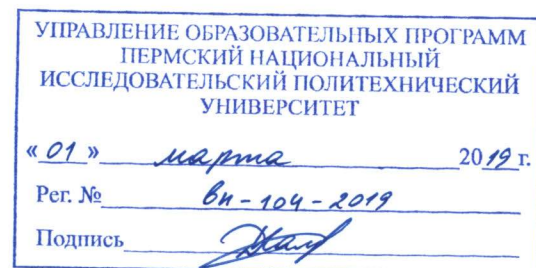 УПРАВЛЕНИЕ ОБРАЗОВАТЕЛЬНЫХ ПРОГРАММ
ПЕРМСКИЙ НАЦИОНАЛЬНЫЙ
ИССЛЕДОВАТЕЛЬСКИЙ ПОЛИТЕХНИЧЕСКИЙ
УНИВЕРСИТЕТ
«01» марта 2019 г.
Рег. № вн-104-2019
Подпись